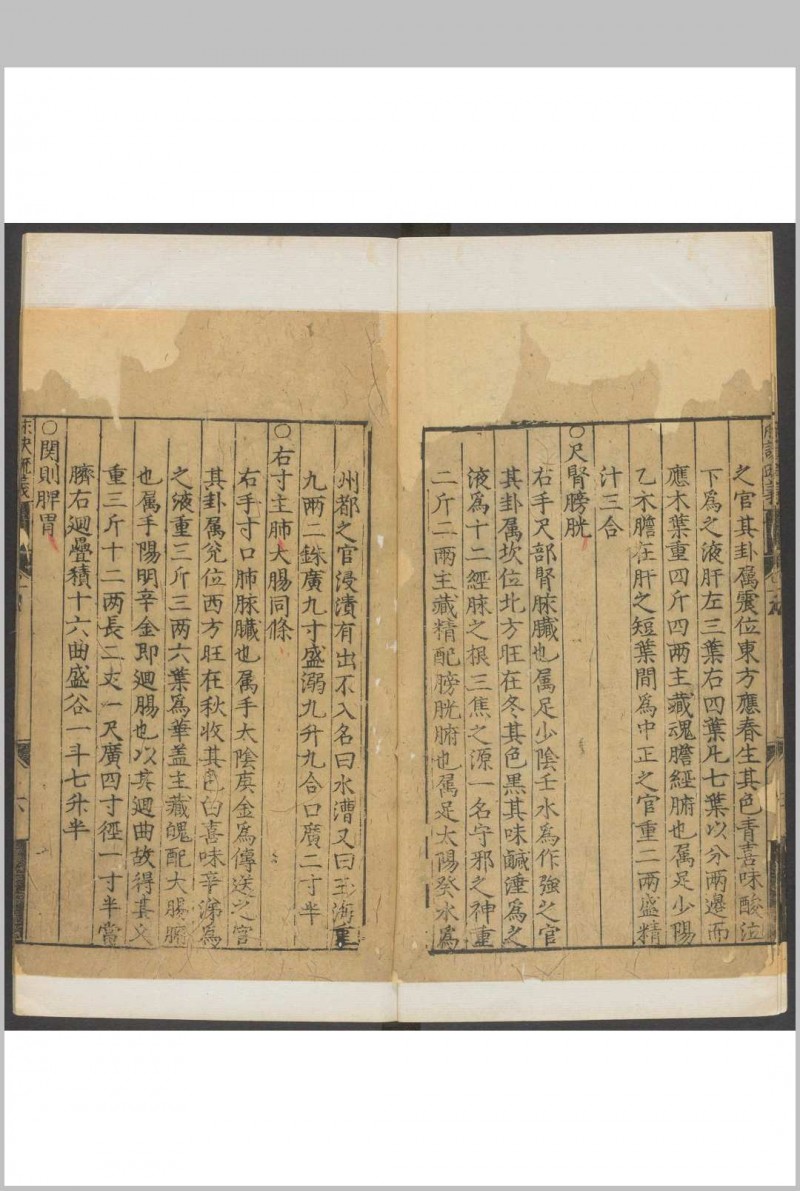 之官其卦属震位東方應春生其色青喜味酸泣
下為之液肝左三葉右四葉凡七葉以分兩邊而
應木葉重四斤四两主藏魂膽經腑也属足少陽
乙木膽在肝之短葉間為中正之官重二两盛精
汁三合
○尺腎膀胱
右手尺部腎脉臟也属足少陰壬水為作強之官
其卦属坎位北方旺在冬其色黒其味鹹涶為之
液為十二經脉之根三焦之源一名守邪之神重
二斤二两主藏精配膀胱腑也属足太陽癸水為
州都之官浸漬有出不入名曰水漕又曰玉海重
九两二銖廣九寸盛溺九升九合口廣二寸半
○右寸主肺大腸同條
右手寸口肺脉臟也属手太陰庚金為傳送之官
其卦属兊位西方旺在秋收其色白喜味辛涕為
之液重三斤三两六葉為華盖主藏魄配大腸腑
也属手陽明辛金即迴腸也以其迴曲故得其文
重三斤十二两長二丈一尺廣四寸徑一寸半當
臍右迴疊積十六曲盛谷一斗七升半
○関則脾胃
脉訣疏義
六